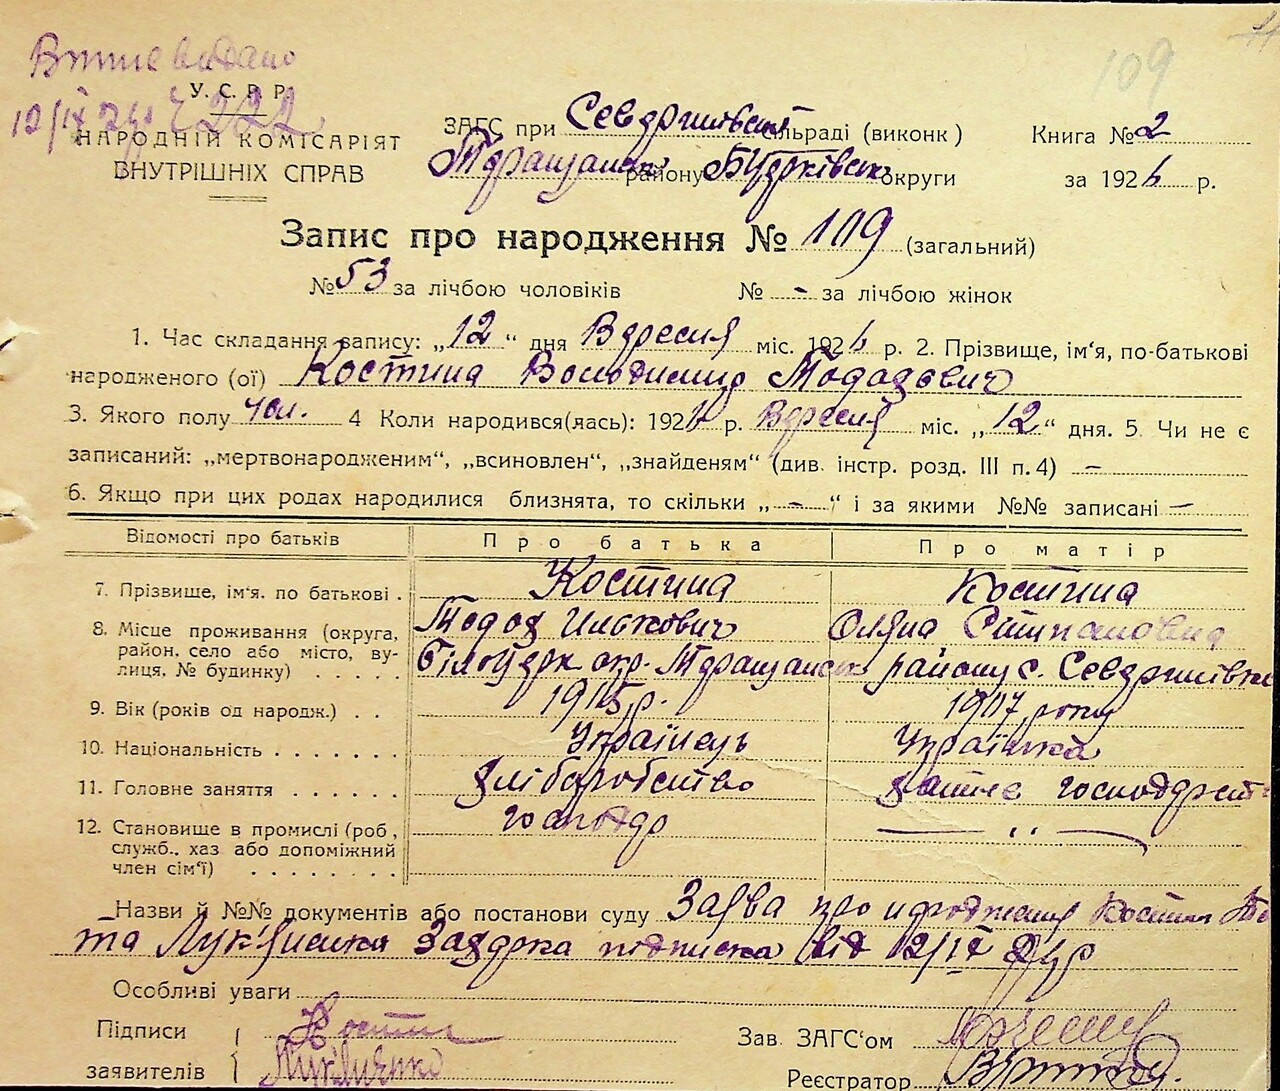 109
У. С. Р. Р.
НАРОДНІЙ КОМІСАРІЯТ
ВНУТРІШНІХ СПРАВ
ЗАГС при сільраді (виконк )
району округи
Книга № 2
за 1926 р.
Запис про народження № 109 (загальний)
№ 53 за лічбою чоловіків № - за лічбою жінок
1. Час складання запису: „12“ дня Вересня міс. 1926 р. 2. Прізвище, ім'я, по-батькові
народженого (ої) Костина Володимир Тодозович
3. Якого полу чол. 4 Коли народився(лась): 1926 р. Вересня міс. „12“ дня. 5. Чи не є
записаний: „мертвонародженим“, „всиновлен“, „знайденям“ (див. інстр. розд. III п. 4) —
6. Якщо при цих родах народилися близнята, то скільки „-“ і за якими №№ записані —
Відомості про батьків Про батька Про матір
7. Прізвище, ім'я. по батькові . Костина Костина
8. Місце проживання (округа, район, село або місто, вулиця, № будинку) . . . . .
Тодоз Ількович Оляна
Білоцерк окр. Таращанськ району с.
9. Вік (років од народж.) . . 1905 р. 1907 року
10. Національність . . . . . . . Українець Українка
11. Головне заняття . . . . . . хліборобство хатнє господарст
12. Становище в промислі (роб, служб., хаз або допоміжний член сім'ї) . . . . . . . . господар — „ —
Назви й №№ документів або постанови суду Заява про народження Костин
та Лук'яненка підписка від 12/IX
Особливі уваги
Підписи заявителів
Костин
Лук'яненко
Зав. ЗАГС'ом
Реєстратор